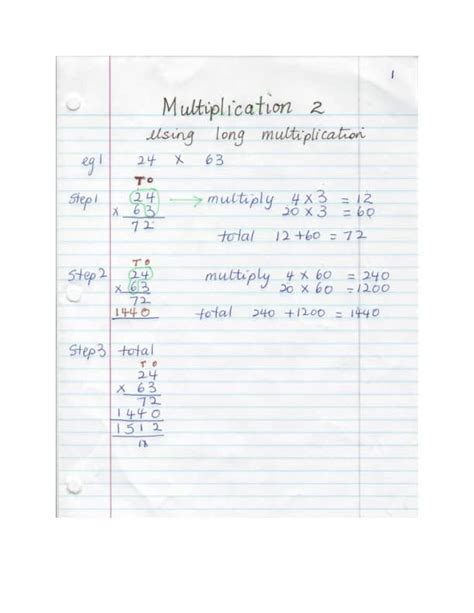 1
Multiplication 2
Using long multiplication
eg1 24 x 63
T O
Step1 24 → multiply 4 x 3 = 12
x 63 20 x 3 = 60
72
total 12 + 60 = 72
T O
Step2 24 multiply 4 x 60 = 240
x 63 20 x 60 = 1200
72
1440 total 240 + 1200 = 1440
Step3 total
T O
24
x 63
72
1440
1512